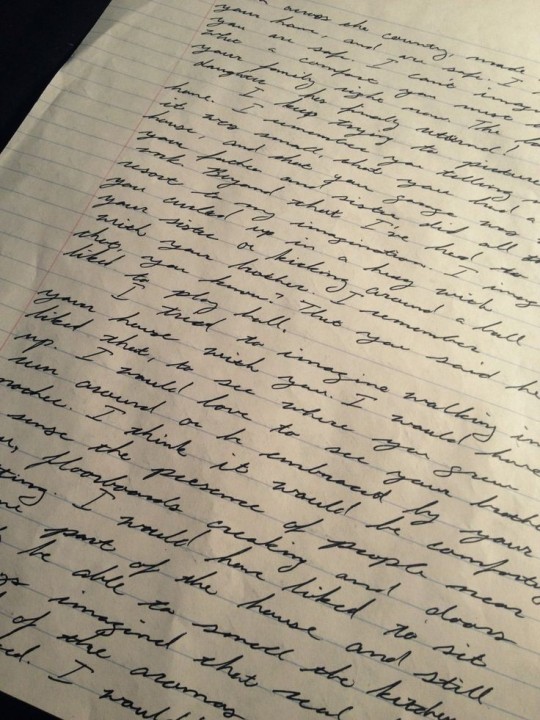 across the country, made
your home, and are safe. I
you are safe. I can't imag
what a comfort you must
your family right now. The
daughter has finally returned
I keep trying to picture
home. I remember you telling
it was small, that you had a
house, and that your garage was
your father and sister did all th
work. Beyond that I've had to
resort to my imagination. I imag
you curled up in a hug with
your sister or kicking around a ball
with your brother. I remember
that, you know? That you said he
liked to play ball.
I tried to imagine walking in
your house with you. I would have
liked that, to see where you grew
up. I would love to see your brothe
run around or be embraced by your
mother. I think it would be comforti
sense the presence of people near
floorboards creaking and doors
I would have liked to sit
part of the house and still
be able to smell the kitchen
imagined that real
of the aromas
I would